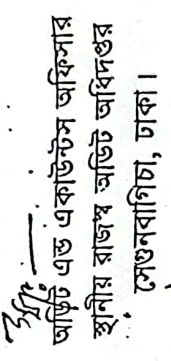 অডিট এন্ড একাউন্টস অফিসার
স্থানীয় রাজস্ব অডিট অধিদপ্তর
সেগুনবাগিচা, ঢাকা।